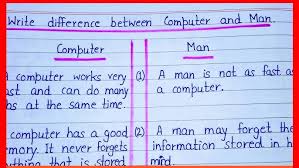 Write difference between Computer and Man.
Computer
Man
computer works very
and can do many
at the same time.
computer has a good
It never forgets
that is stored
(1) A man is not as fast as
a computer.
(2) A man may forget the
information stored in h
mind.